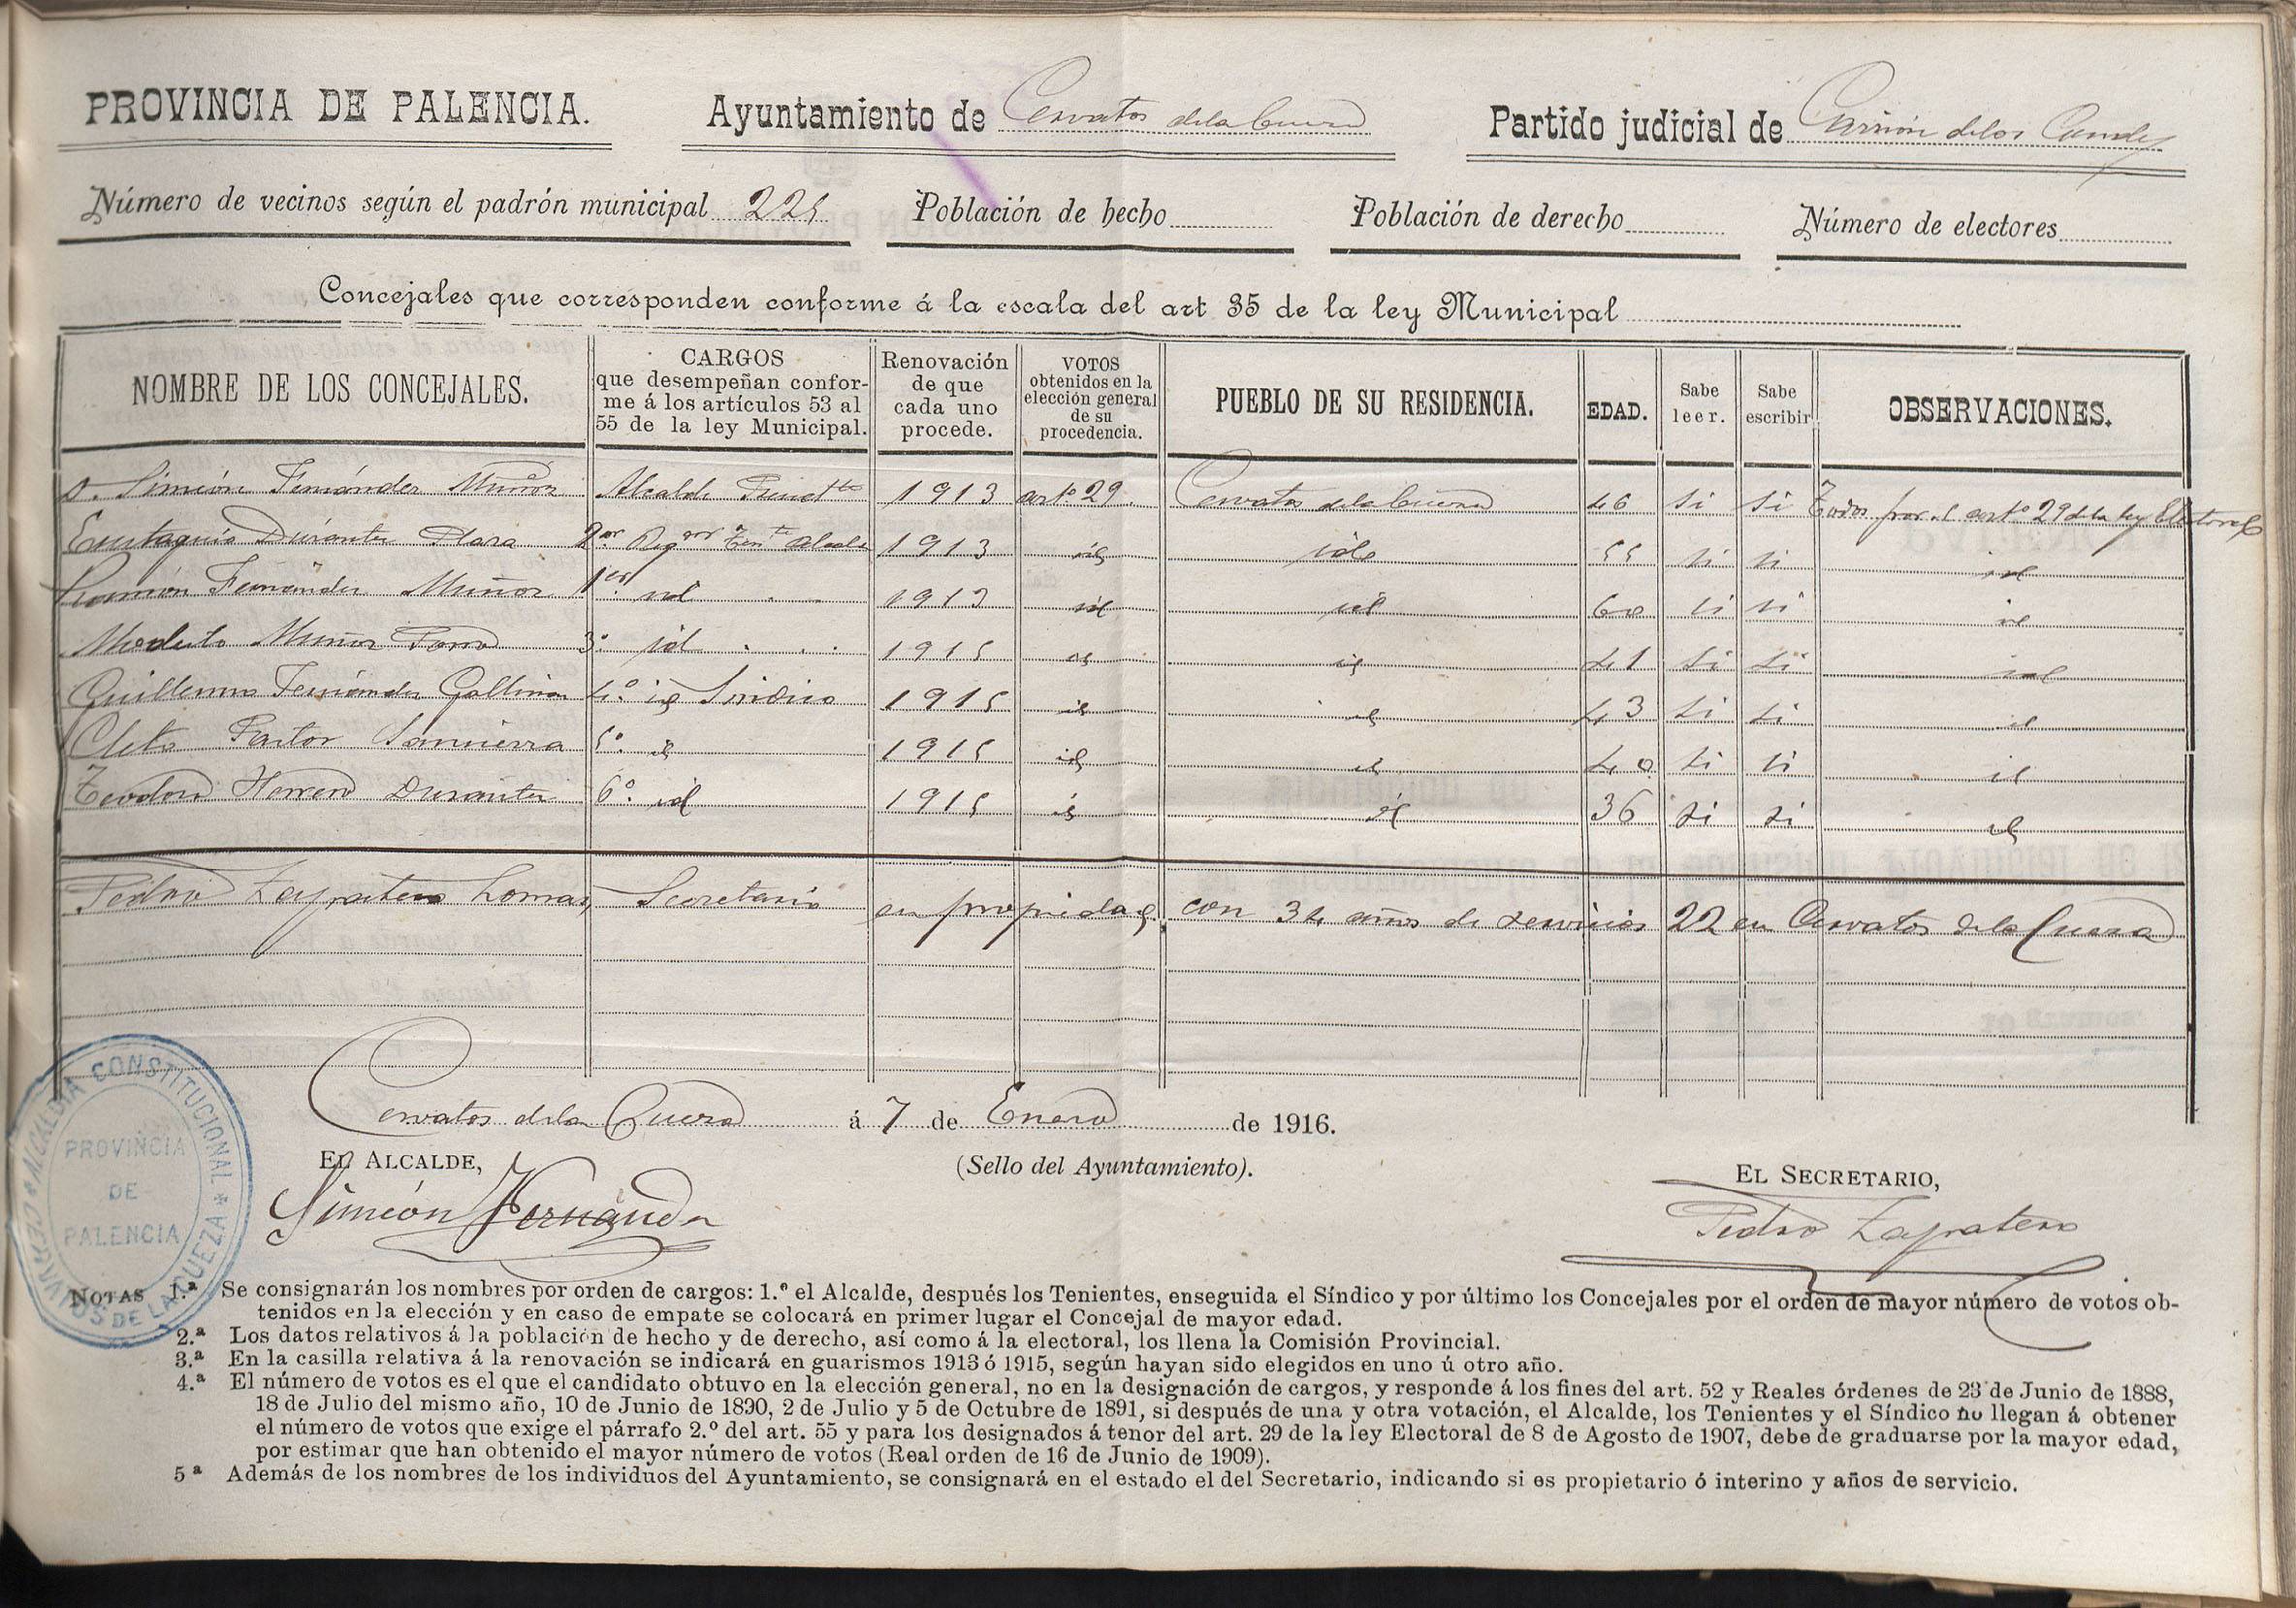 PROVINCIA DE PALENCIA. Ayuntamiento de Cervatos de la Cueza Partido judicial de Carrión de los Condes
Número de vecinos según el padrón municipal 225 Población de hecho Población de derecho Número de electores
Concejales que corresponden conforme á la escala del art 35 de la ley Municipal
NOMBRE DE LOS CONCEJALES. CARGOS que desempeñan conforme á los artículos 53 al 55 de la ley Municipal. Renovación de que cada uno procede. VOTOS obtenidos en la elección general de su procedencia. PUEBLO DE SU RESIDENCIA. EDAD. Sabe leer. Sabe escribir OBSERVACIONES.
D. Simeón Fernández Muñoz Alcalde Presidte 1913 arto 29 Cervatos de la Cueza 46 si si Todos por el arto 29 de la ley Electoral
Eustaquio Durántez Plaza 2o Regor Tente Alcalde 1913 id id 55 si si id
Ramón Fernández Muñoz 1er id 1913 id id 60 si si id
Modesto Muñoz 3o id 1915 id id 41 si si id
Guillermo Fernández Gallinas 4o id Sindico 1915 id id 43 si si id
Cleto Pastor 5o id 1915 id id 40 si si id
Teodoro Herrero Durántez 6o id 1915 id id 36 si si id
Pedro Zapatero Lomas, Secretario en propiedad, con 34 años de servicios 22 en Cervatos de la Cueza
Cervatos de la Cueza á 7 de Enero de 1916.
EL ALCALDE, (Sello del Ayuntamiento). EL SECRETARIO,
Simeón Fernández Pedro Zapatero
ALCALDIA CONSTITUCIONAL * CERVATOS DE LA CUEZA *
PROVINCIA
DE
PALENCIA
NOTAS 1.ª Se consignarán los nombres por orden de cargos: 1.º el Alcalde, después los Tenientes, enseguida el Síndico y por último los Concejales por el orden de mayor número de votos ob-
tenidos en la elección y en caso de empate se colocará en primer lugar el Concejal de mayor edad.
2.ª Los datos relativos á la población de hecho y de derecho, así como á la electoral, los llena la Comisión Provincial.
3.ª En la casilla relativa á la renovación se indicará en guarismos 1913 ó 1915, según hayan sido elegidos en uno ú otro año.
4.ª El número de votos es el que el candidato obtuvo en la elección general, no en la designación de cargos, y responde á los fines del art. 52 y Reales órdenes de 23 de Junio de 1888,
18 de Julio del mismo año, 10 de Junio de 1890, 2 de Julio y 5 de Octubre de 1891, si después de una y otra votación, el Alcalde, los Tenientes y el Síndico no llegan á obtener
el número de votos que exige el párrafo 2.º del art. 55 y para los designados á tenor del art. 29 de la ley Electoral de 8 de Agosto de 1907, debe de graduarse por la mayor edad,
por estimar que han obtenido el mayor número de votos (Real orden de 16 de Junio de 1909).
5ª Además de los nombres de los individuos del Ayuntamiento, se consignará en el estado el del Secretario, indicando si es propietario ó interino y años de servicio.